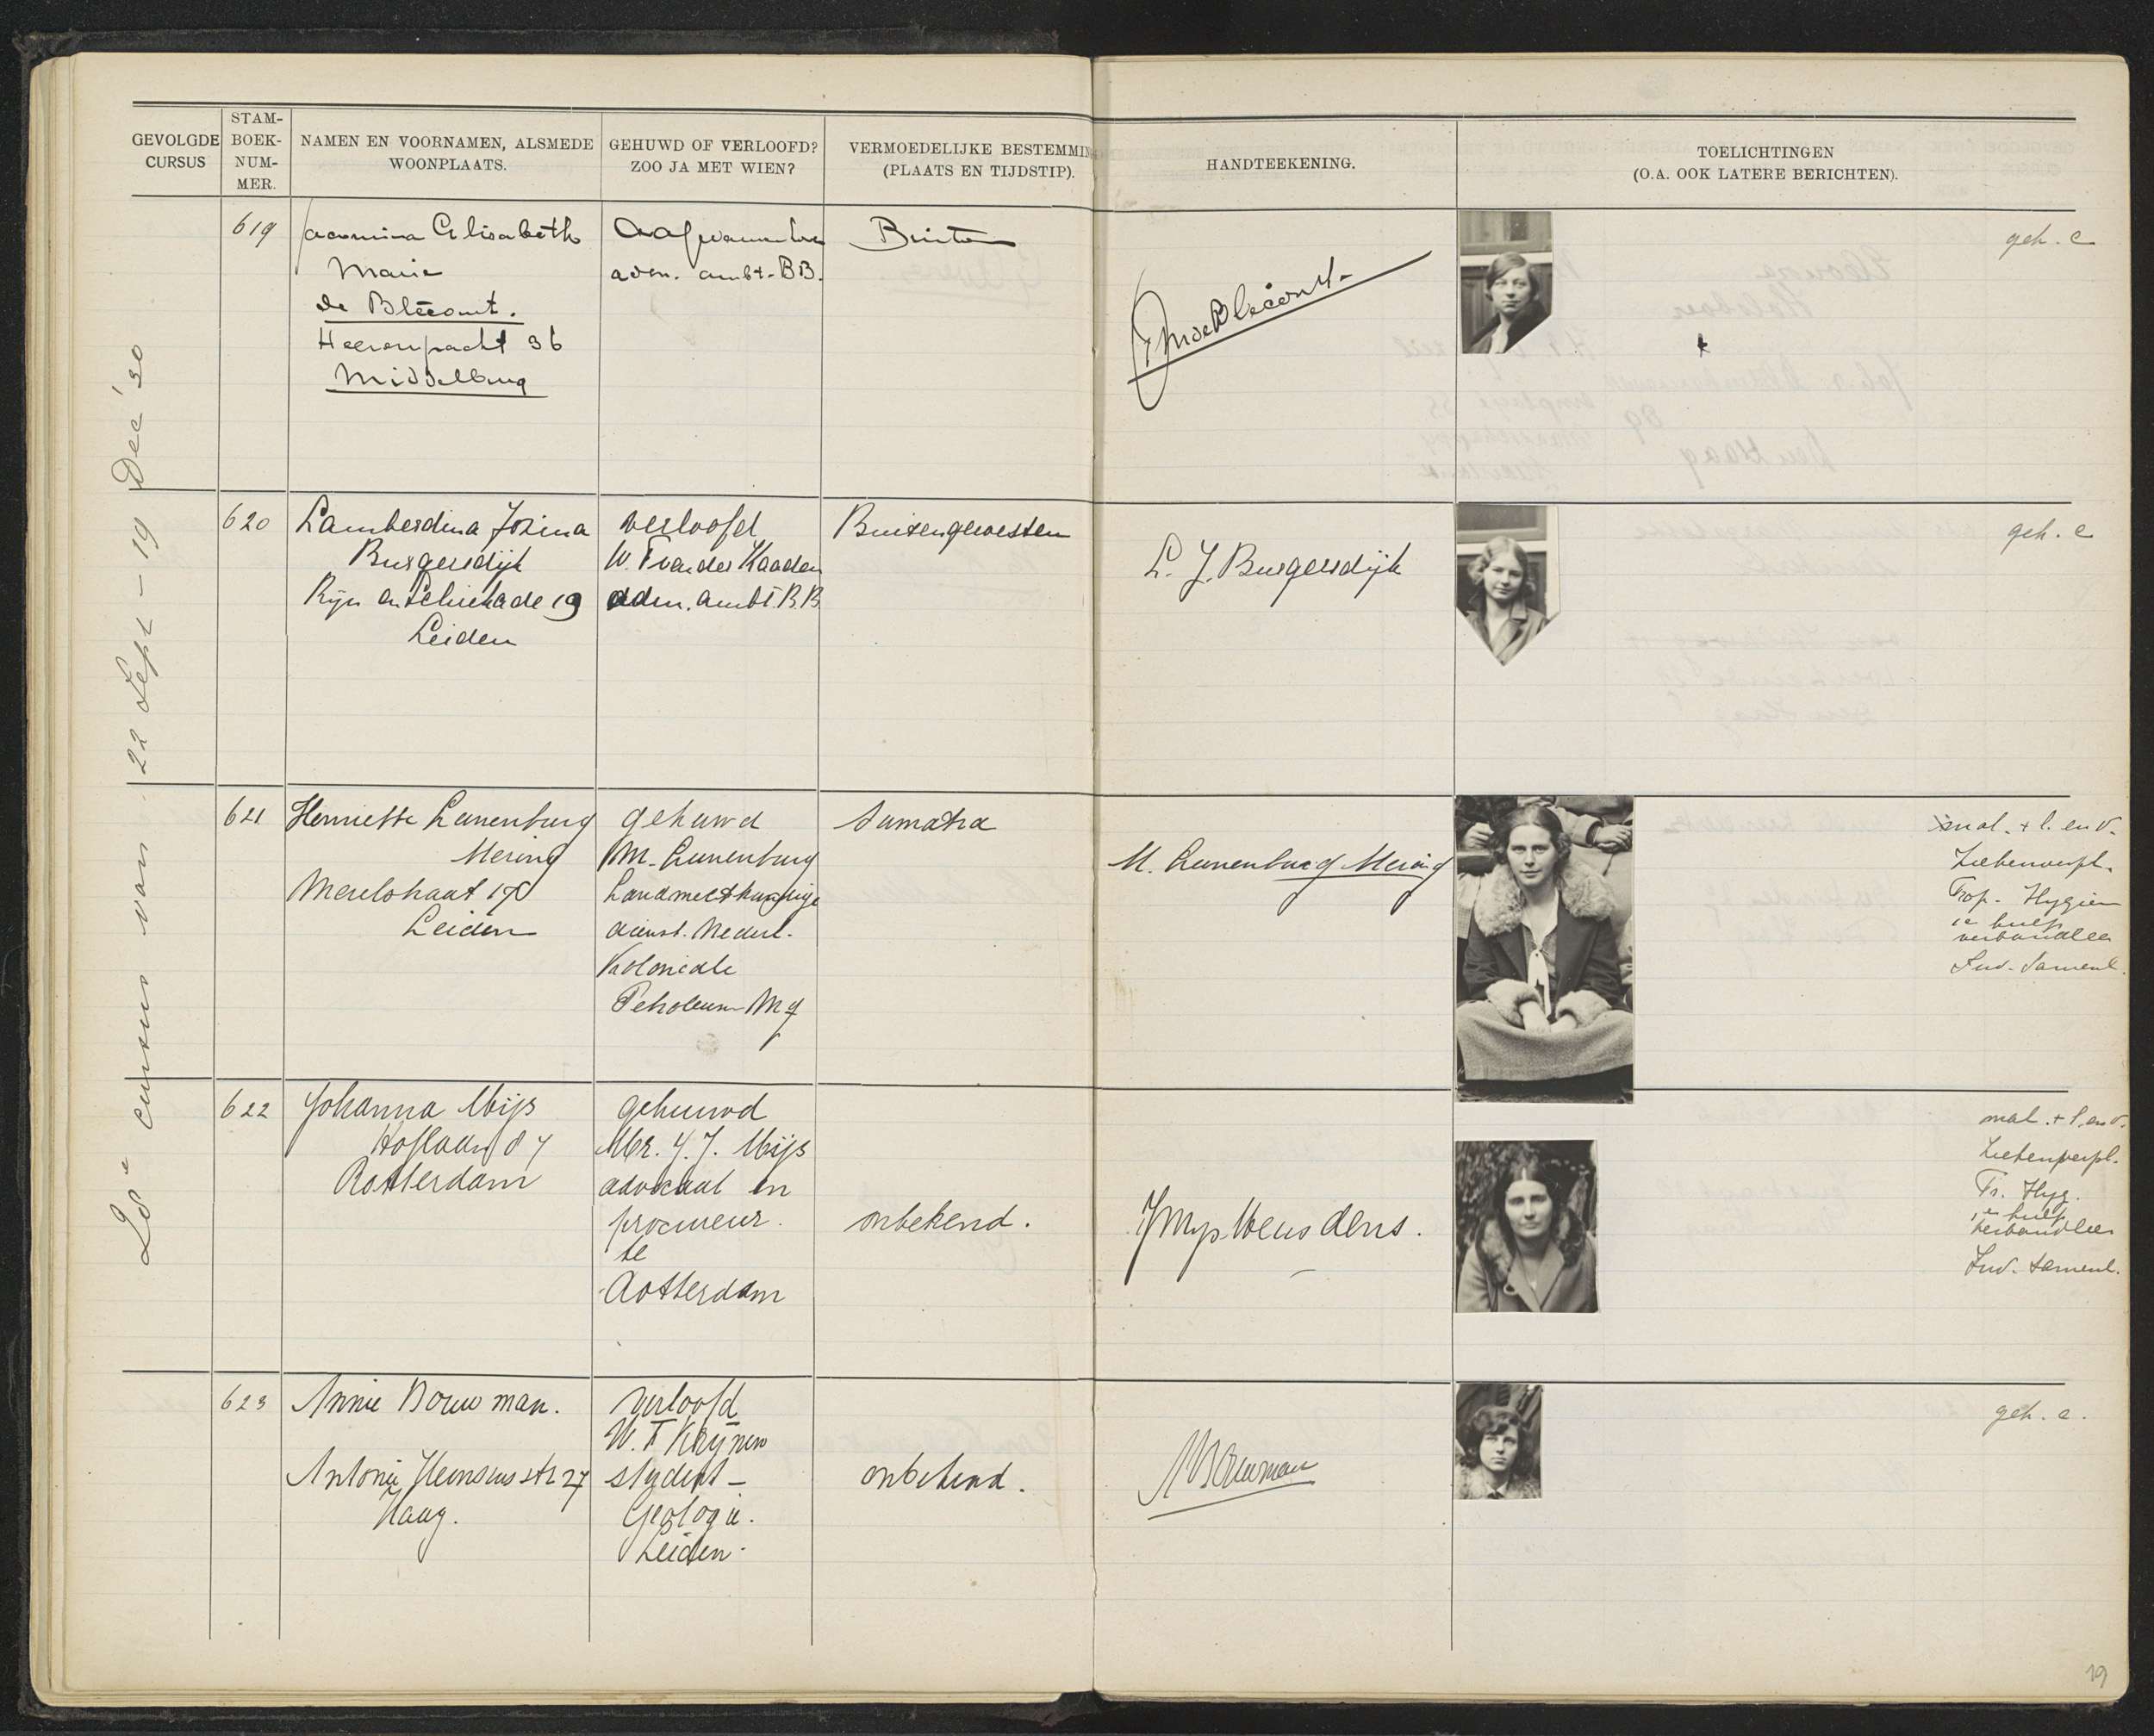 GEVOLGDE CURSUS
STAM-BOEK-NUM-MER.
NAMEN EN VOORNAMEN, ALSMEDE WOONPLAATS.
GEHUWD OF VERLOOFD? ZOO JA MET WIEN?
VERMOEDELIJKE BESTEMMIN (PLAATS EN TIJDSTIP).
HANDTEEKENING.
TOELICHTINGEN (O.A. OOK LATERE BERICHTEN).
cursus van 22 Sept - 19 Dec '30
619
Jacomina Elisabeth
Marie
de Blécourt.
36
Middelburg
adm. ambt. BB.
Buiten
de Blécourt
geh. c
620
Lamberdina Jozina
Burgersdijk
Rijn en Schiekade 19
Leiden
verloofd
W. F van der Kaaden
adm. ambt. B.B.
Buitengewesten
L. J. Burgersdijk
geh. c
621
Henriette Lunenburg
Mering
Leiden
gehuwd
M. Lunenburg
Landmeetkundige
dienst. Nederl.
Koloniale
Petroleum Mij
Sumatra
M. Lunenburg Mering
mal. + l. en v.
Ziekenverpl.
Trop. Hygien
1e hulp
verbandleer
Ind. Samenl.
622
Johanna Mijs
Hoflaan 87
Rotterdam
gehuwd
Mr. J. J. Mijs
advokaat en
procureur.
te
Rotterdam
onbekend.
mal. + l. en v.
Ziekenverpl.
Tr. Hyg.
1e hulp
verbandleer
Ind. Samenl.
623
Annie Bouwman.
Antonie Heinsius str 27
Haag.
verloofd
W. F Krijnen
student -
Geologie.
Leiden.
onbekend.
ABouwman
geh. c.
19